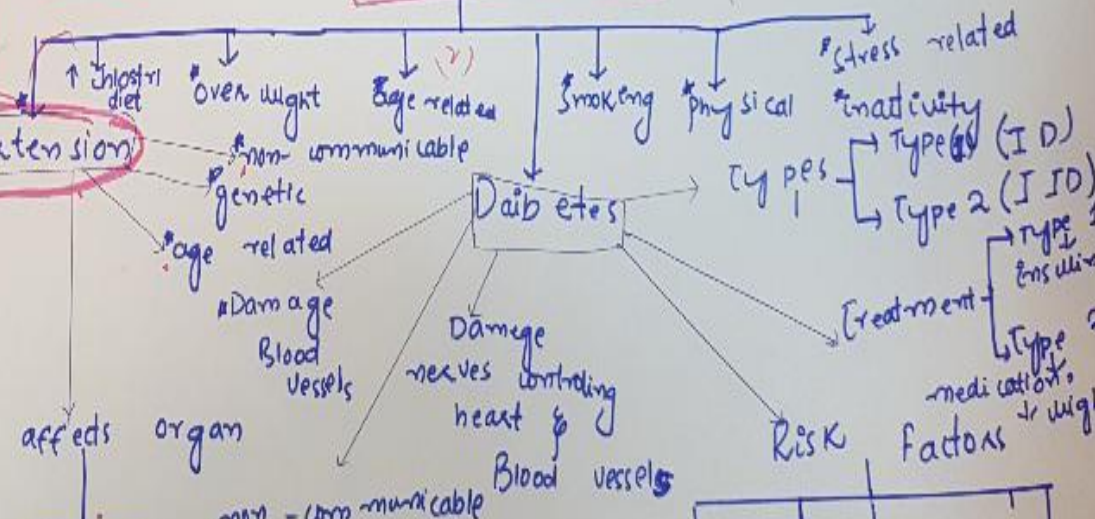 (?)
* Stress related
↑ Chlostrl
diet
* Over wight
* age related
* Smoking
* Physical
inactivity
tension
* non-communicable
* genetic
* age related
Daibetes
Types
Type (1) (ID)
Type 2 (IID)
Treatment
Type 1
insulin
Type 2
medication,
↓ wig
* Damage
Blood
vessels
Damege
nerves controling
heart &
Blood vessels
affects organ
Risk Factors
non-communicable